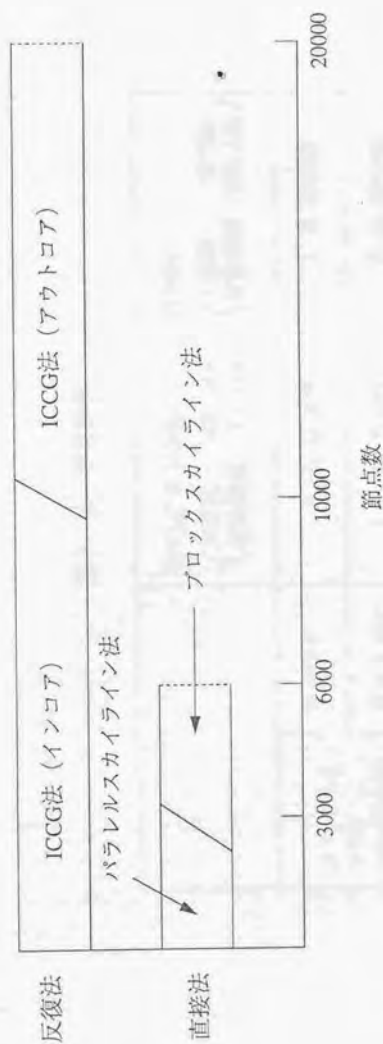 反復法
ICCG法（インコア）
ICCG法（アウトコア）
直接法
パラレルスカイライン法
ブロックスカイライン法
3000
6000
10000
20000
節点数